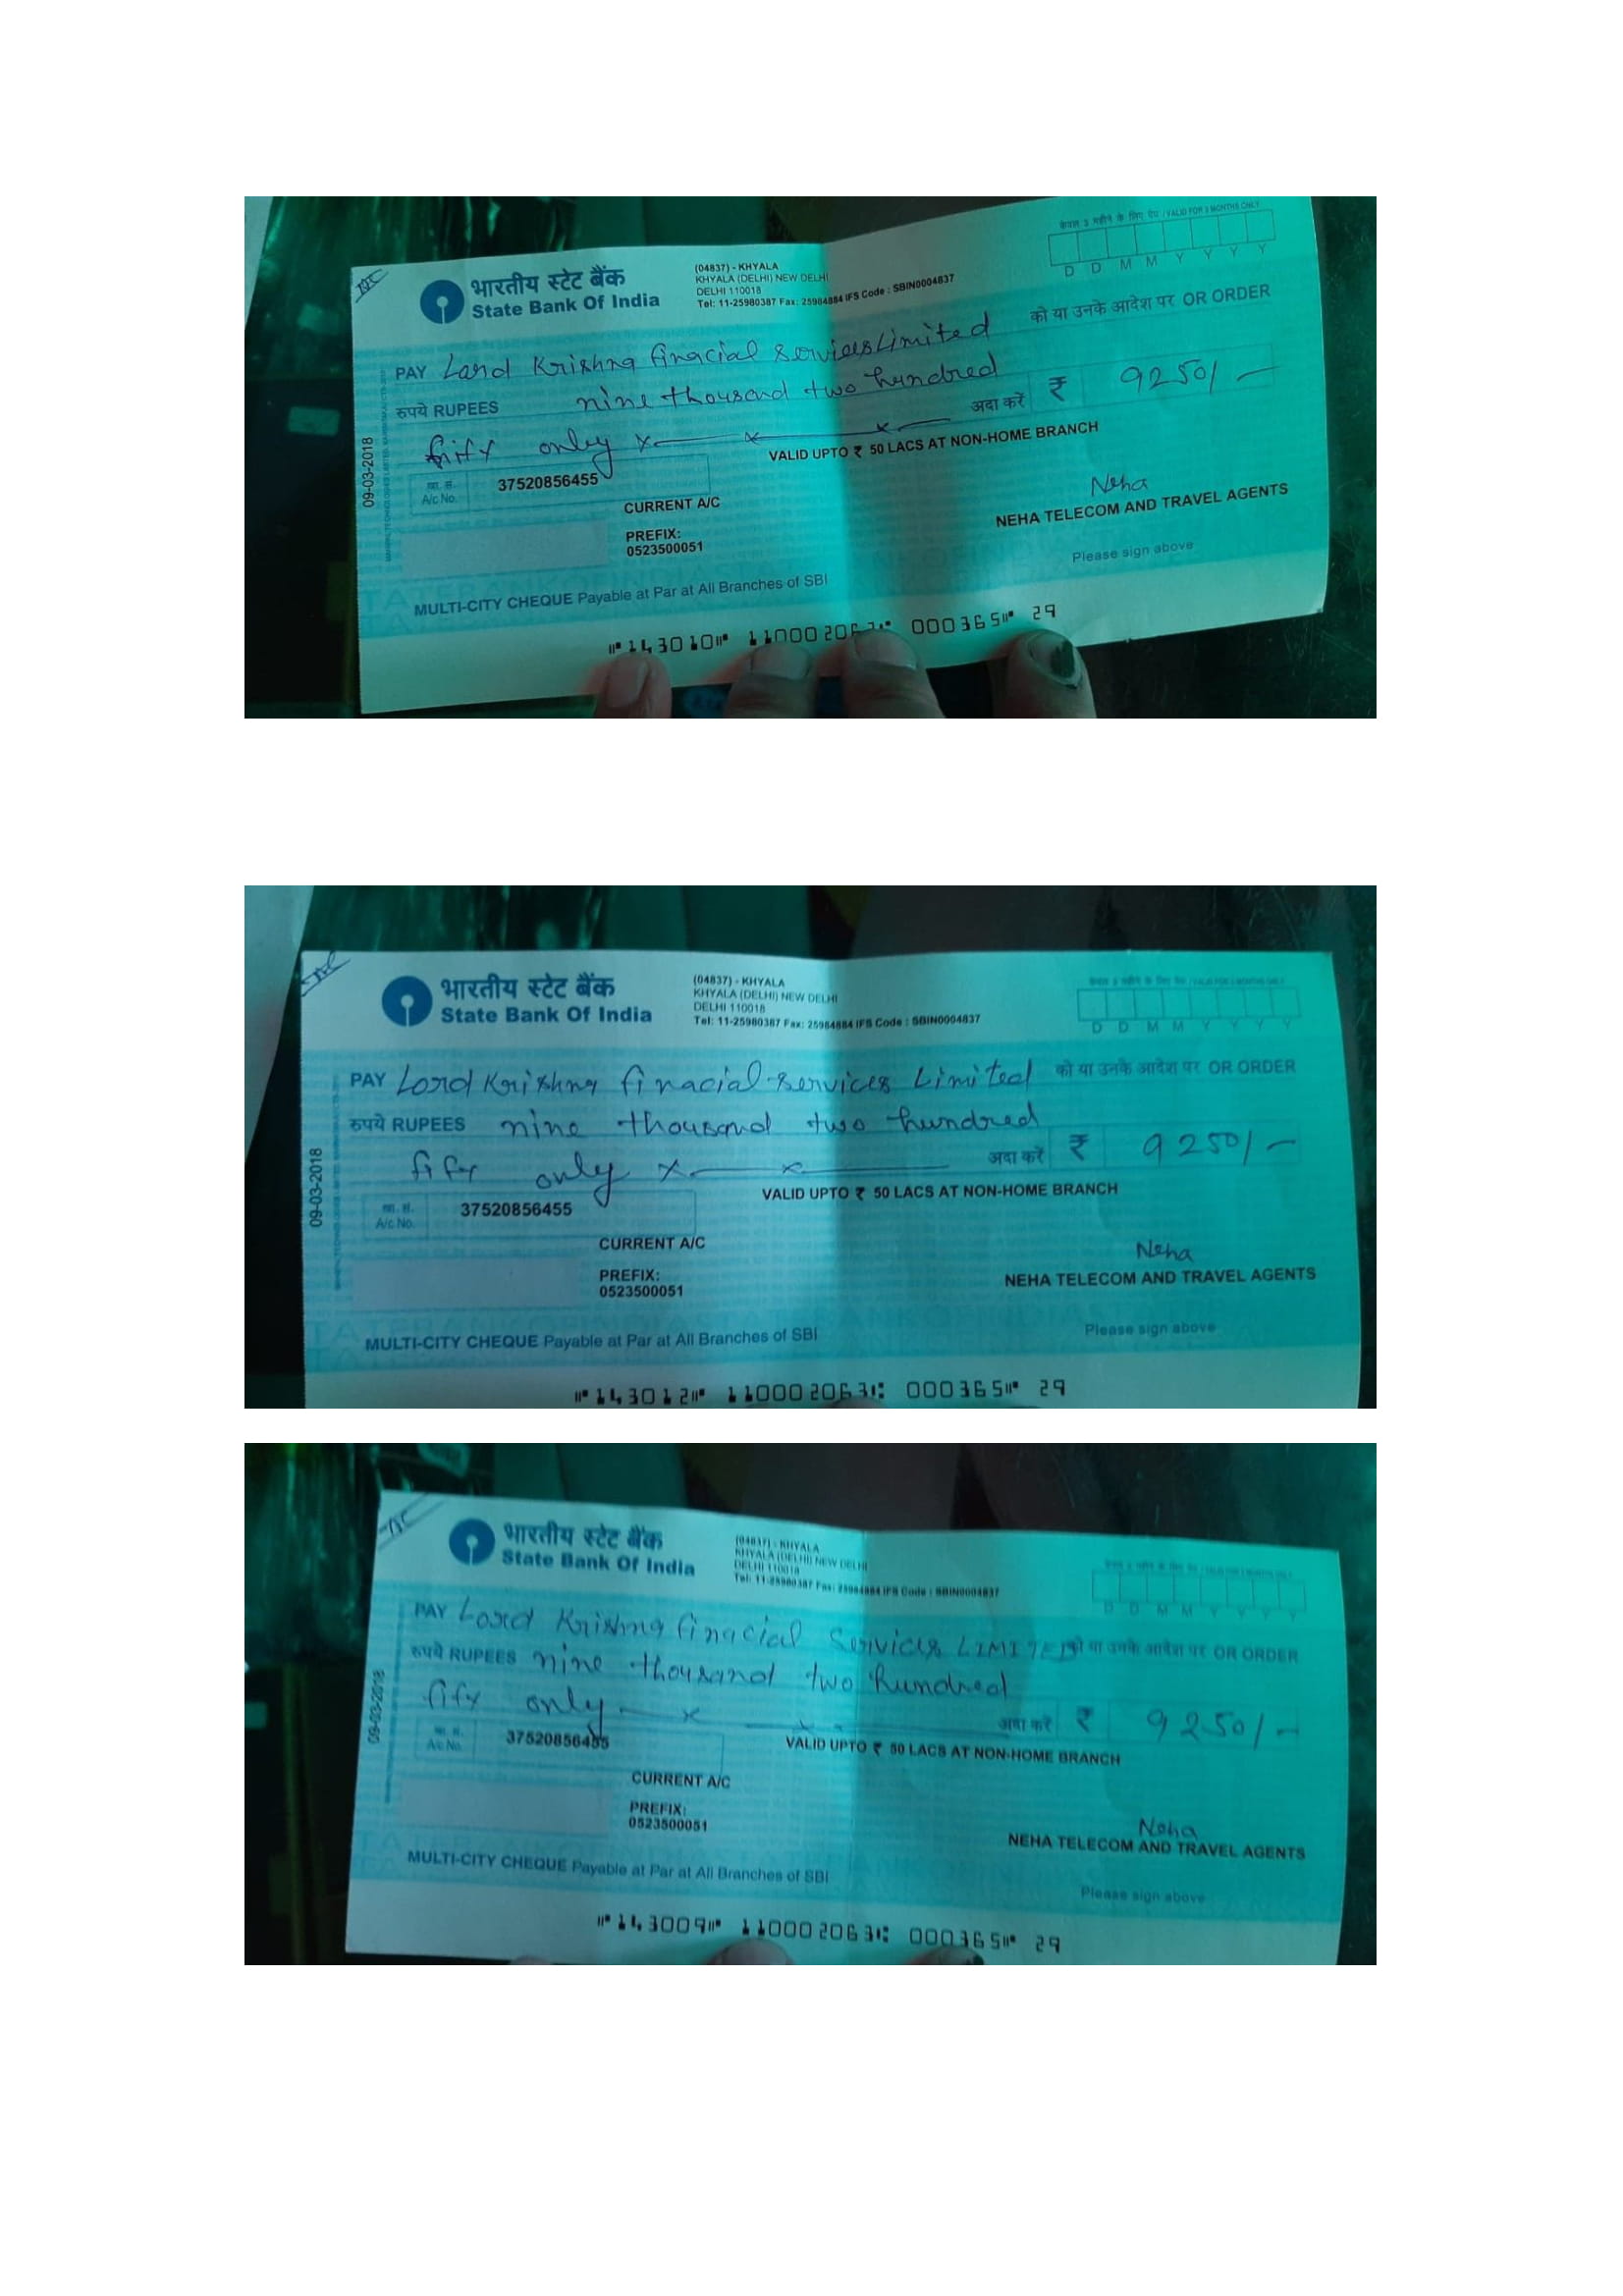 केवल 3 महीने के लिए वैध / VALID FOR 3 MONTHS ONLY
D D M M Y Y Y Y
भारतीय स्टेट बैंक
State Bank Of India
(04837) - KHYALA
KHYALA (DELHI) NEW DELHI
DELHI 110018
Tel: 11-25980387 Fax: 25984884 IFS Code : SBIN0004837
PAY Lord Krishna finacial Services Limited को या उनके आदेश पर OR ORDER
रुपये RUPEES nine thousand two hundred
fify only अदा करें ₹ 9250/-
VALID UPTO ₹ 50 LACS AT NON-HOME BRANCH
09-03-2018
खा. सं.
A/c No. 37520856455
CURRENT A/C
PREFIX:
0523500051
Neha
NEHA TELECOM AND TRAVEL AGENTS
Please sign above
MULTI-CITY CHEQUE Payable at Par at All Branches of SBI
⑈143010⑈ 11000206 000365⑈ 29
D D M M Y Y Y Y
भारतीय स्टेट बैंक
State Bank Of India
(04837) - KHYALA
KHYALA (DELHI) NEW DELHI
DELHI 110018
Tel: 11-25980387 Fax: 25984884 IFS Code : SBIN0004837
PAY Lord Krishna finacial services Limited को या उनके आदेश पर OR ORDER
रुपये RUPEES nine thousand two hundred
fify only अदा करें ₹ 9250/-
VALID UPTO ₹ 50 LACS AT NON-HOME BRANCH
09-03-2018
खा. सं.
A/c No. 37520856455
CURRENT A/C
PREFIX:
0523500051
Neha
NEHA TELECOM AND TRAVEL AGENTS
Please sign above
MULTI-CITY CHEQUE Payable at Par at All Branches of SBI
⑈143012⑈ 110002063⑆ 000365⑈ 29
D D M M Y Y Y Y
भारतीय स्टेट बैंक
State Bank Of India
(04837) - KHYALA
KHYALA (DELHI) NEW DELHI
DELHI 110018
Tel: 11-25980387 Fax: 25984884 IFS Code : SBIN0004837
PAY Lord Krishna finacial Services LIMITED को या उनके आदेश पर OR ORDER
रुपये RUPEES nine thousand two hundred
fify only अदा करें ₹ 9250/-
VALID UPTO ₹ 50 LACS AT NON-HOME BRANCH
09-03-2018
खा. सं.
A/c No. 37520856455
CURRENT A/C
PREFIX:
0523500051
Neha
NEHA TELECOM AND TRAVEL AGENTS
Please sign above
MULTI-CITY CHEQUE Payable at Par at All Branches of SBI
⑈143009⑈ 110002063⑆ 000365⑈ 29